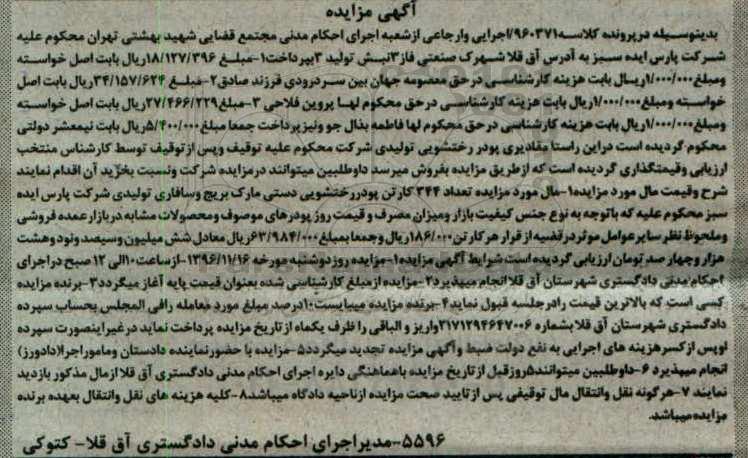 آگهی مزایده
بدینوسیله درپرونده کلاسه۹۶۰۳۷۱/اجرایی وارجاعی ازشعبه اجرای احکام مدنی مجتمع قضایی شهید بهشتی تهران محکوم علیه
شرکت پارس ایده سبز به آدرس آق قلا شهرک صنعتی فاز۳نبش تولید ۳بپرداخت۱-مبلغ ۱۸/۱۲۷/۳۹۶ریال بابت اصل خواسته
ومبلغ۱/۰۰۰/۰۰۰ریال بابت هزینه کارشناسی درحق معصومه جهان بین سردرودی فرزند صادق۲-مبلغ ۳۴/۱۵۷/۶۲۴ریال بابت اصل
خواسته ومبلغ۱/۰۰۰/۰۰۰ریال بابت هزینه کارشناسی درحق محکوم لها پروین فلاحی ۳-مبلغ۲۷/۴۶۶/۲۲۹ریال بابت اصل خواسته
ومبلغ۱/۰۰۰/۰۰۰ریال بابت هزینه کارشناسی درحق محکوم لها فاطمه بذال جو ونیزپرداخت جمعا مبلغ۵/۴۰۰/۰۰۰ریال بابت نیمعشر دولتی
محکوم گردیده است دراین راستا مقادیری پودر رختشویی تولیدی شرکت محکوم علیه توقیف وپس ازتوقیف توسط کارشناس منتخب
ارزیابی وقیمتگذاری گردیده است که ازطریق مزایده بفروش میرسد داوطلبین میتوانند درمزایده شرکت ونسبت بخرید آن اقدام نمایند
شرح وقیمت مال مورد مزایده۱-مال مورد مزایده تعداد ۳۴۴ کارتن پودررختشویی دستی مارک بریچ وسافاری تولیدی شرکت پارس ایده
سبز محکوم علیه که باتوجه به نوع جنس کیفیت بازار ومیزان مصرف و قیمت روز پودرهای موصوف ومحصولات مشابه دربازار عمده فروشی
وملحوظ نظر سایر عوامل موثر درقضیه از قرار هر کارتن ۱۸۶/۰۰۰ریال وجمعا بمبلغ ۶۳/۹۸۴/۰۰۰ریال معادل شش میلیون وسیصد ونود وهشت
هزار وچهار صد تومان ارزیابی گردیده است شرایط آگهی مزایده۱-مزایده روز دوشنبه مورخه ۱۳۹۶/۱۱/۱۶-ازساعت۱۰الی ۱۲صبح دراجرای
احکام مدنی دادگستری شهرستان آق قلا انجام میپذیرد۲-مزایده ازمبلغ کارشناسی شده بعنوان قیمت پایه آغاز میگردد۳-برنده مزایده
کسی است که بالاترین قیمت رادرجلسه قبول نماید۴-برنده مزایده میبایست۱۰درصد مبلغ مورد معامله رافی المجلس بحساب سپرده
دادگستری شهرستان آق قلا بشماره ۲۱۷۱۲۹۴۶۴۷۰۰۶واریز و الباقی را ظرف یکماه از تاریخ مزایده پرداخت نماید درغیراینصورت سپرده
اوپس ازکسرهزینه های اجرایی به نفع دولت ضبط وآگهی مزایده تجدید میگردد۵-مزایده با حضورنماینده دادستان ومامور‌اجرا(دادورز)
انجام میپذیرد ۶-داوطلبین میتوانند۵روزقبل ازتاریخ مزایده باهماهنگی دایره اجرای احکام مدنی دادگستری آق قلا ازمال مذکور بازدید
نمایند ۷-هرگونه نقل وانتقال مال توقیفی پس ازتایید صحت مزایده ازناحیه دادگاه میباشد۸-کلیه هزینه های نقل وانتقال بعهده برنده
مزایده میباشد.
۵۵۹۶-مدیراجرای احکام مدنی دادگستری آق قلا- کتوکی